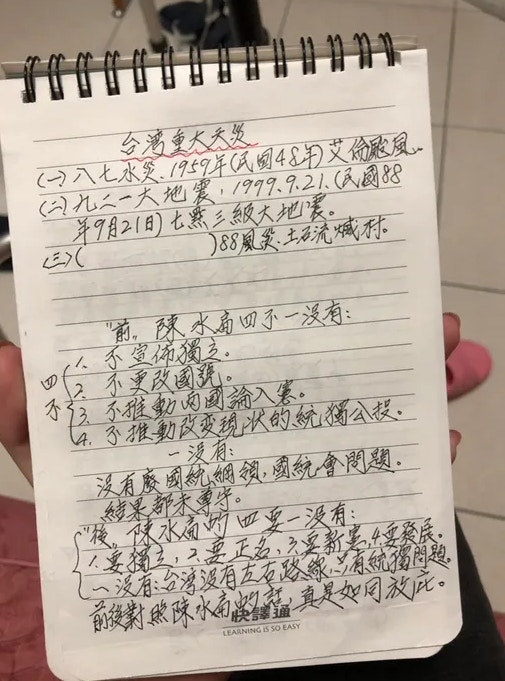 台湾重大天災
(一)八七水災、1959年(民國48年)艾伦颱風。
(二)九二一大地震,1999.9.21.(民國88
年9月21日)七點三級大地震。
(三)( )88風災、土石流烕村。
"前"陳水扁四不一沒有:
四不
1. 不宣佈獨立。
2. 不更改國號。
3. 不推動両國論入憲。
4. 不推動改变現状的統獨公投。
一沒有:
沒有廢國統綱領,國統會問題。
結果都未導守。
"後"陳水扁的四要一沒有:
1.要獨立,2.要正名,3.要新憲,4.要發展。
一沒有:台湾沒有左右路線,只有統獨問題。
前後對照陳水扁的話,真是如同放屁。
快譯通
LEARNING IS SO EASY